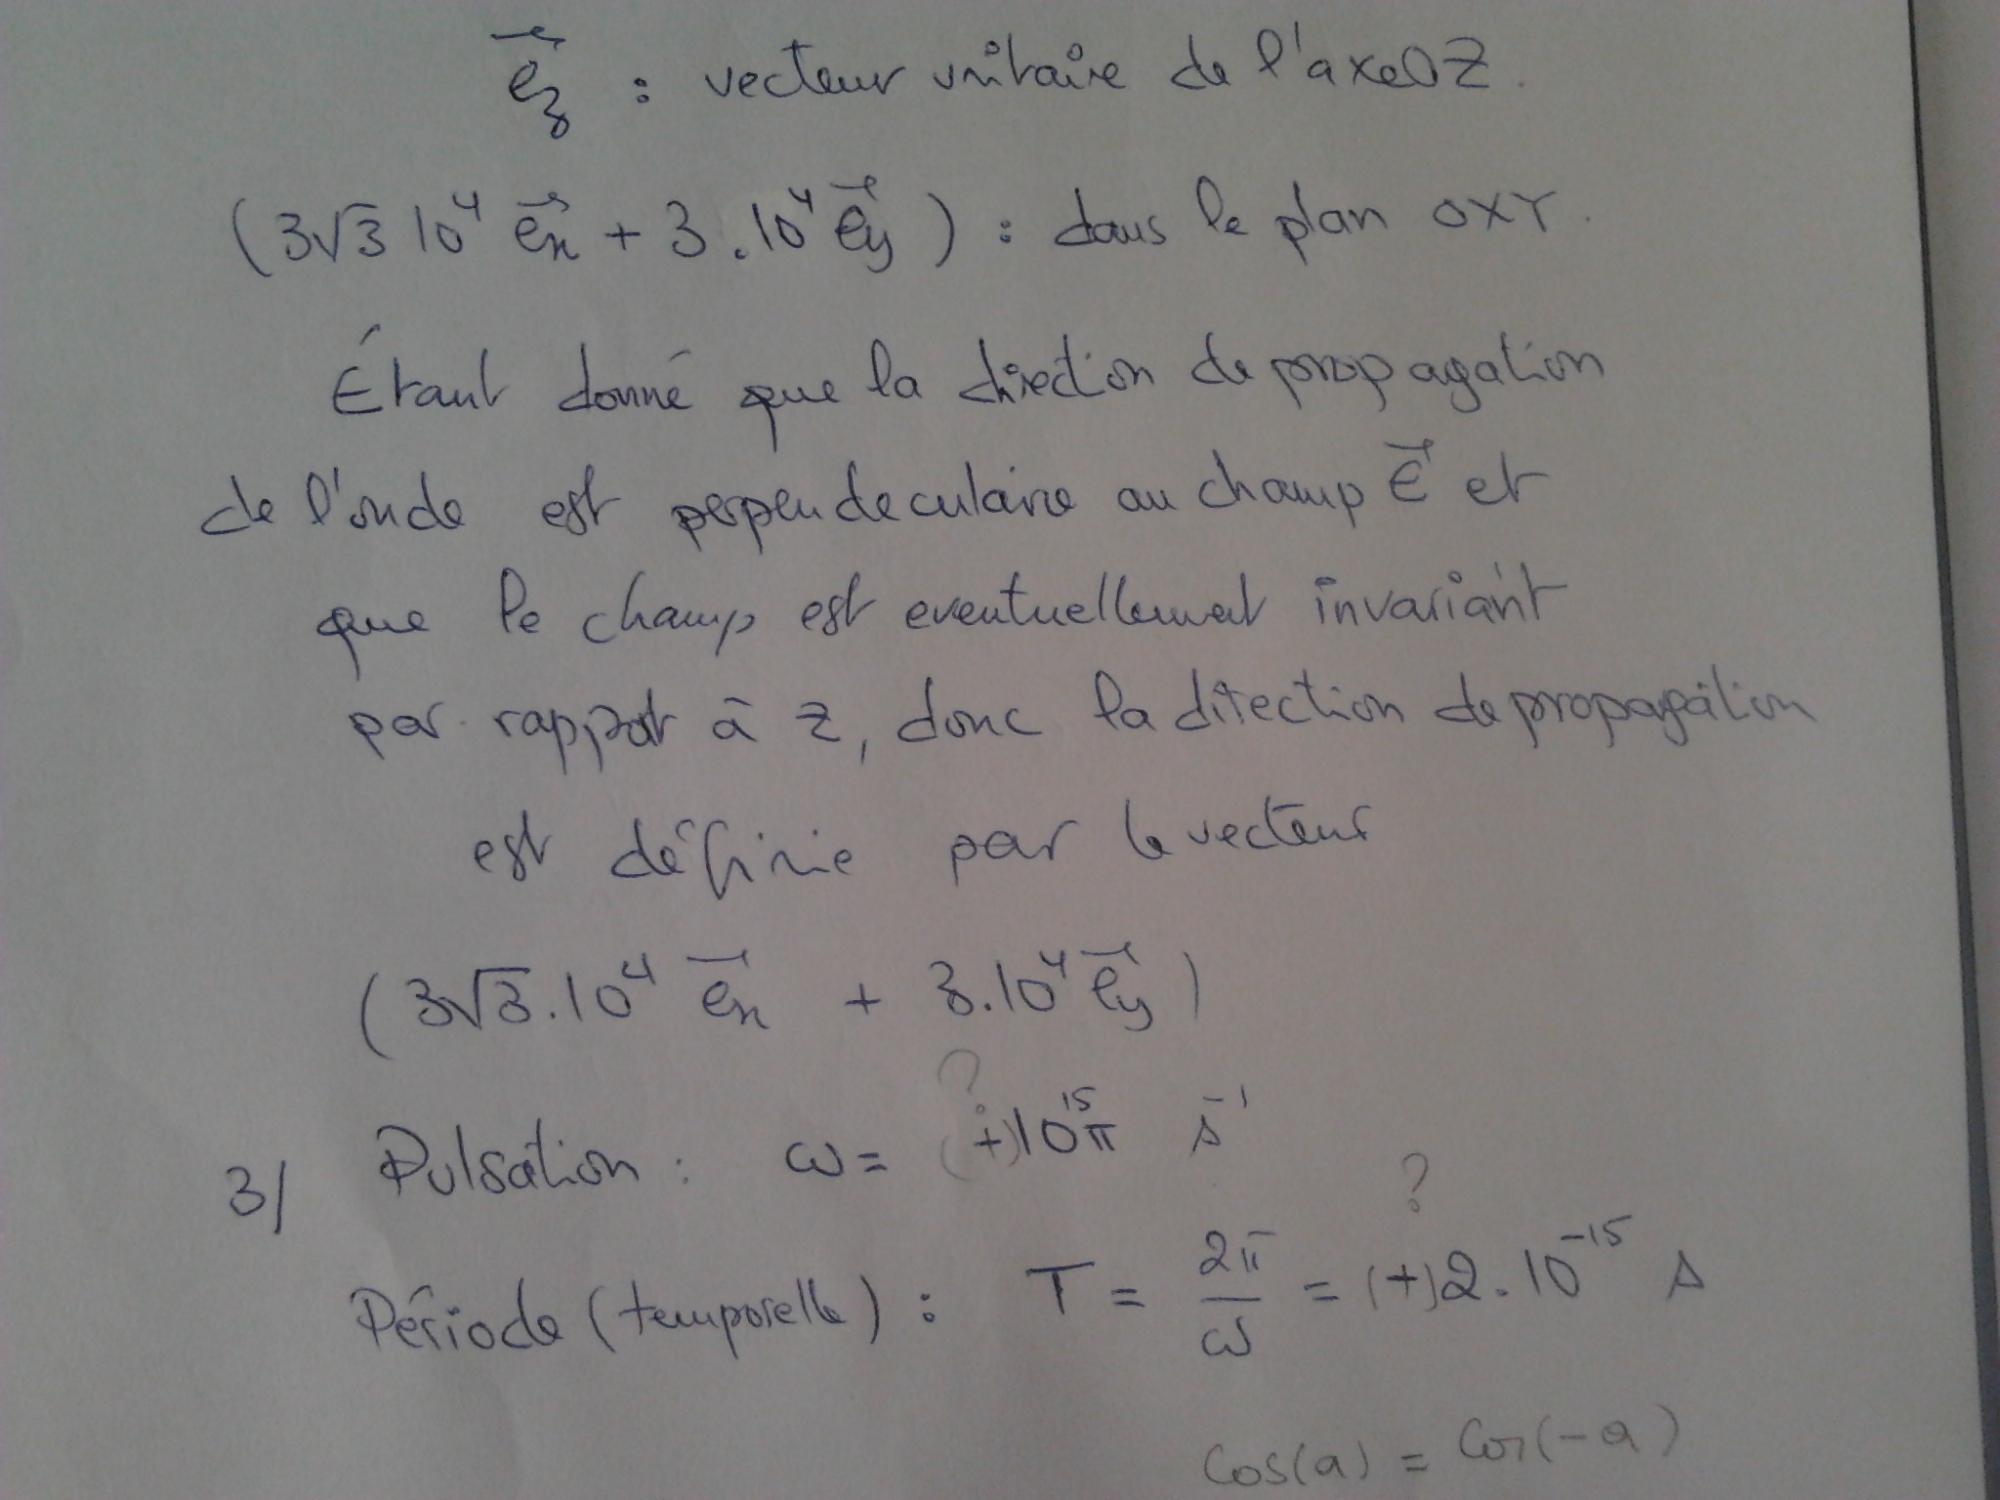 $\vec{e_z}$ : vecteur unitaire de l'axe OZ.
$(3\sqrt{3}\,10^4\,\vec{e_x} + 3.10^4\,\vec{e_y})$ : dans le plan OXY.
Étant donné que la direction de propagation
de l'onde est perpendeculaire au champ $\vec{E}$ et
que le champ est eventuellement invariant
par rapport à z, donc la direction de propagation
est définie par le vecteur
$(3\sqrt{3}.10^4\,\vec{e_x} + 3.10^4\,\vec{e_y})$
?
3/ Pulsation : $\omega = (+)10^{15}\pi \; s^{-1}$
?
Période (temporelle) : $T = \frac{2\pi}{\omega} = (+)2.10^{-15} \; s$
cos(a) = cos(-a)